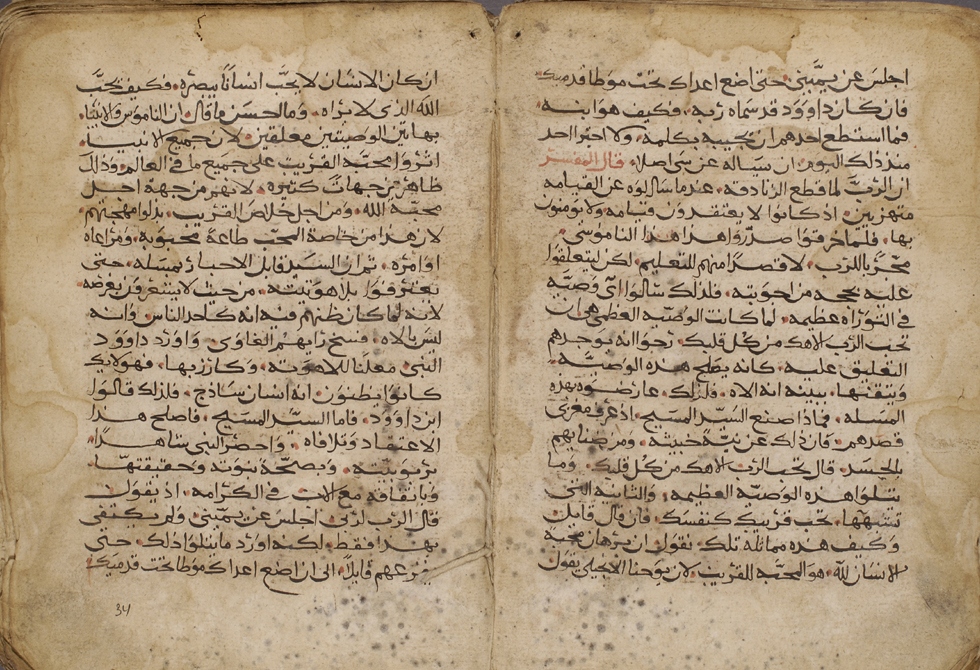 اجلس عن يميني حتى اضع اعداك تحت موطا قدميك
فان كان داوود قد سماه ربه. فكيف هو ابنه
فما استطع احدهم ان يجيبه بكلمة. ولا اجترا احد
منذ ذلك اليوم. ان يساله عن شي اصلا. قال المفسر
ان الرب لما قطع الزنادقة. عندما سالوه عن القيامه
متهزيين. اذ كانوا لا يعتقدون قيامه ولا يومنون
بها. فلما خرقوا صدروا هذا الناموسي.
مجربا للرب. لا قصدا منهم للتعليم. لكن ليتعلقوا
عليه بحجه من اجوبته. فلذلك سالوا اي وصيه
في التوراه عظيمه. لما كانت الوصيه العظمى هي ان
تحب الرب الاهك من كل قلبك. رجوا انه يوجدهم
التعليق عليه. كانه يصلح هذه الوصية.
وينقتها. بنيته انه الاه. فلذلك عارضوه بهذه
المسله. فماذا صنع السيد المسيح. اذ عرف مغزى
قصدهم. فان ذاك عن نية خبيثة. ومرضا بهم
بالحسد. قال تحب الرب الاهك من كل قلبك. وما
يتلوا هذه الوصية العظيمه. والثانيه التي
تشبهها. تحب قريبك كنفسك. فان قال قايل.
وكيف هذه مماثلة تلك. نقول ان برهان محبة
الانسان لله. هو الحب للقريب. لان يوحنا الانجيلي يقول
ان كان الانسان لا يحب انسانا يبصره. فكيف يحب
الله الذي لا يراه. وما احسن ما قال ان الناموس والانبيا.
بهاتين الوصيتين معلقين. لان جميع الانبيا.
اثروا محبة القريب على جميع ما في العالم. وذلك
ظاهر من جهات كثيره. لانهم من جهة اجل
محبة الله. ومن اجل خلاص القريب. بذلوا مهجتهم
لان هذا من خاصة المحب طاعة محبوبه. ومراعاه
اوامره. ثم ان السيد قابل الاحبار بمسله. حتى
يعترفوا بلاهوتيته. من حيث لا يشعرون بغرضه
لانه لما كان ظنهم فيه انه كاحد الناس. وانه
ليس بالاه. فسخ رايهم الغاوي. واورد داوود
النبي معلنا للاهوته. وكارز بها. فهولايك
كانوا يظنون انه انسان ساذج. فلذلك قالوا
ابن داوود. فاما السيد المسيح. فاصلح هذا
الاعتقاد وتلافاه. واحضر النبي شاهدا.
بربوبيته. وبصحة بنوته وحقيقتها.
وباتفاقه مع الاب في الكرامه. اذ يقول
قال الرب لربي اجلس عن يميني ولم يكتفي
بهذا فقط. لكنه اورد ما يتلوا ذلك. حتى
يفزعهم قايلا. الى ان اضع اعداك موطا تحت قدميك
34